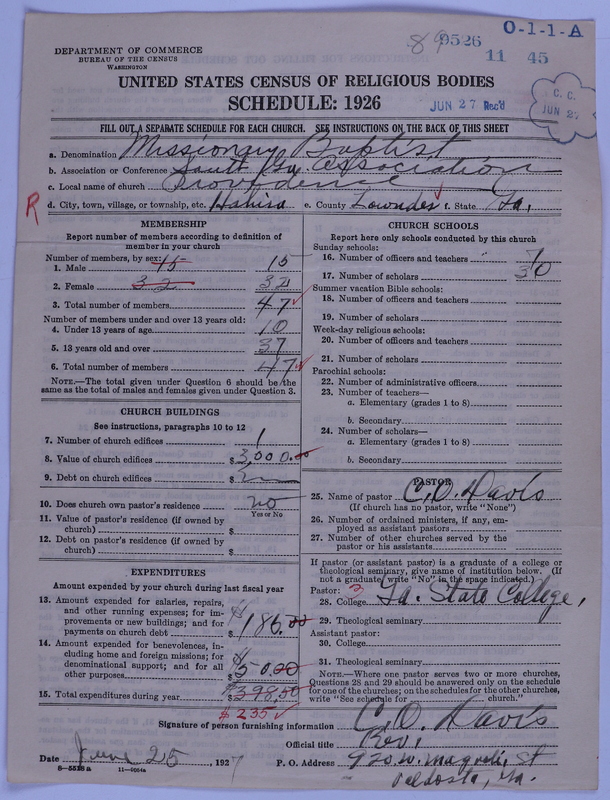 O-1-1-A
89 9526
11 45
DEPARTMENT OF COMMERCE
BUREAU OF THE CENSUS
WASHINGTON
UNITED STATES CENSUS OF RELIGIOUS BODIES
SCHEDULE: 1926
JUN 27 Rec'd
C. C.
JUN 27
FILL OUT A SEPARATE SCHEDULE FOR EACH CHURCH. SEE INSTRUCTIONS ON THE BACK OF THIS SHEET
a. Denomination Missionary Baptist
b. Association or Conference South Ga. Association
c. Local name of church Providence
R
d. City, town, village, or township, etc. Hahira e. County Lowndes f. State Ga.
MEMBERSHIP
Report number of members according to definition of
member in your church
Number of members, by sex:
1. Male 15 15
2. Female 32 32
3. Total number of members 47
Number of members under and over 13 years old:
4. Under 13 years of age 10
5. 13 years old and over 37
6. Total number of members 47
NOTE.—The total given under Question 6 should be the
same as the total of males and females given under Question 3.
CHURCH BUILDINGS
See instructions, paragraphs 10 to 12
7. Number of church edifices 1
8. Value of church edifices $3,000.00
9. Debt on church edifices $
10. Does church own pastor's residence no
Yes or No
11. Value of pastor's residence (if owned by
church) $
12. Debt on pastor's residence (if owned by
church) $
EXPENDITURES
Amount expended by your church during last fiscal year
13. Amount expended for salaries, repairs,
and other running expenses; for im-
provements or new buildings; and for
payments on church debt $ $185.00
14. Amount expended for benevolences, in-
cluding home and foreign missions; for
denominational support; and for all
other purposes $ $50.00
15. Total expenditures during year $398.50
$235
CHURCH SCHOOLS
Report here only schools conducted by this church
Sunday schools:
16. Number of officers and teachers 7
17. Number of scholars 30
Summer vacation Bible schools:
18. Number of officers and teachers
19. Number of scholars
Week-day religious schools:
20. Number of officers and teachers
21. Number of scholars
Parochial schools:
22. Number of administrative officers
23. Number of teachers—
a. Elementary (grades 1 to 8)
b. Secondary
24. Number of scholars—
a. Elementary (grades 1 to 8)
b. Secondary
PASTOR
25. Name of pastor C. O. Davis
(If church has no pastor, write "None")
26. Number of ordained ministers, if any, em-
ployed as assistant pastors
27. Number of other churches served by the
pastor or his assistants
If pastor (or assistant pastor) is a graduate of a college or
theological seminary, give name of institution below. (If
not a graduate write "No" in the space indicated.)
Pastor: 3
28. College Ga. State College,
29. Theological seminary
Assistant pastor:
30. College
31. Theological seminary
NOTE.—Where one pastor serves two or more churches,
Questions 28 and 29 should be answered only on the schedule
for one of the churches; on the schedules for the other churches,
write "See schedule for church."
Signature of person furnishing information C. O. Davis
Official title Rev.
Date June 25, 1927 P. O. Address 920 W. Magnoli, St
Valdosta, Ga.
8—5538 a 11—9064a